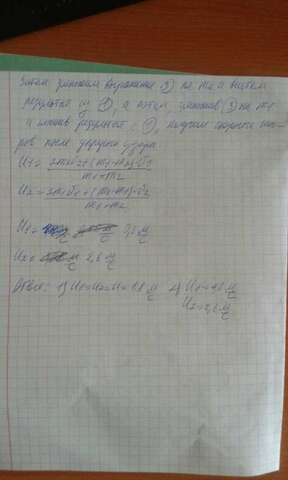 Затем умножим выражение (2) на m2 и вычтем
результат из (1), а затем, умножив (2) на m1
и сложив результат с (1), получим скорости ша-
ров после упругого удара
U1 = 2m2V2+(m1-m2)V1 / m1+m2
U2 = 2m1V1+(m2-m1)V2 / m1+m2
U1 = 0,6 м/с
U2 = 2,6 м/с
Ответ: 1) U1=U2=U= 1,8 м/с 2) U1=0,6 м/с
U2=2,6 м/с